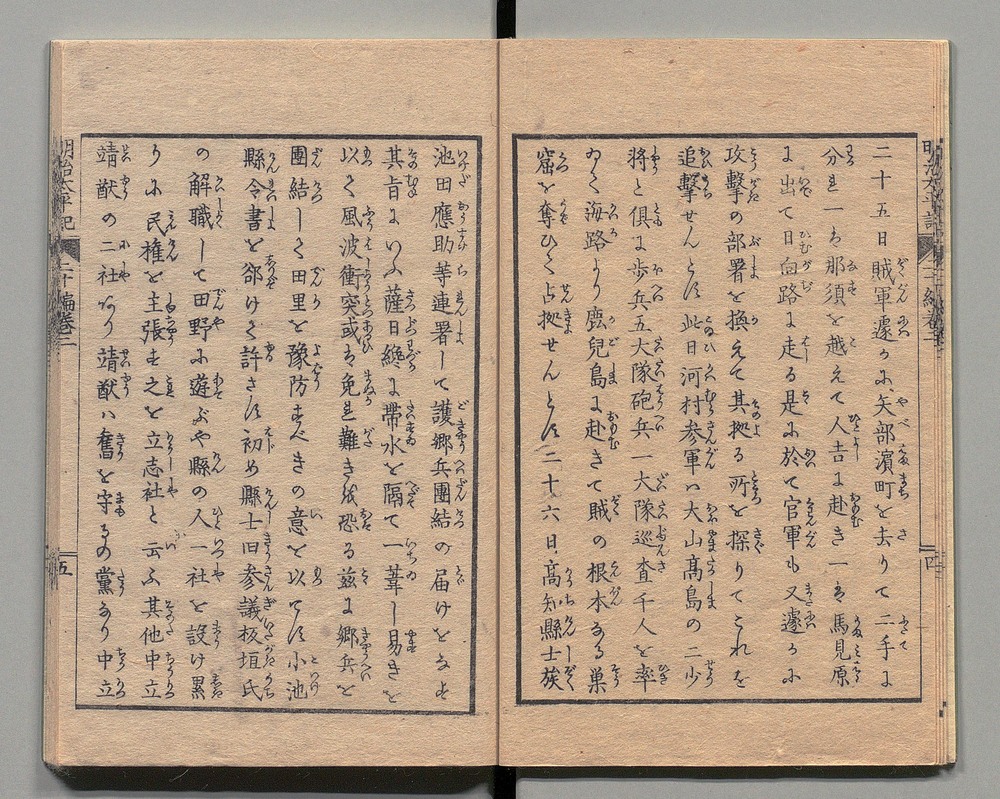 二十五日賊軍遽かに矢部濱町を去りて二手に
分れ一ハ那須を越えて人吉に赴き一ハ馬見原
に出て日向路に走る是に於て官軍も又遽かに
攻撃の部署を換えて其拠る所を探りてこれを
追撃せんとす此日河村参軍ハ大山高島の二少
将と倶に歩兵五大隊砲兵一大隊巡査千人を率
ゐて海路より鹿児島に赴きて賊の根本なる巣
窟を奪ひて占拠せんとす二十六日高知縣士族
池田應助等連署して護郷兵團結の届けをなす
其旨にいふ薩日纔に帶水を隔て一葦し易きを
以て風波衝突或ハ免れ難きを恐る茲に郷兵を
團結して田里を豫防すべきの意を以てす小池
縣令書を郤けて許さず初め縣士旧参議板垣氏
の解職して田野に遊ぶや縣の人一社を設け累
りに民権を主張す之を立志社と云ふ其他中立
靖献の二社あり靖献ハ舊を守るの黨なり中立
明治太平記
二十編巻二
五
四